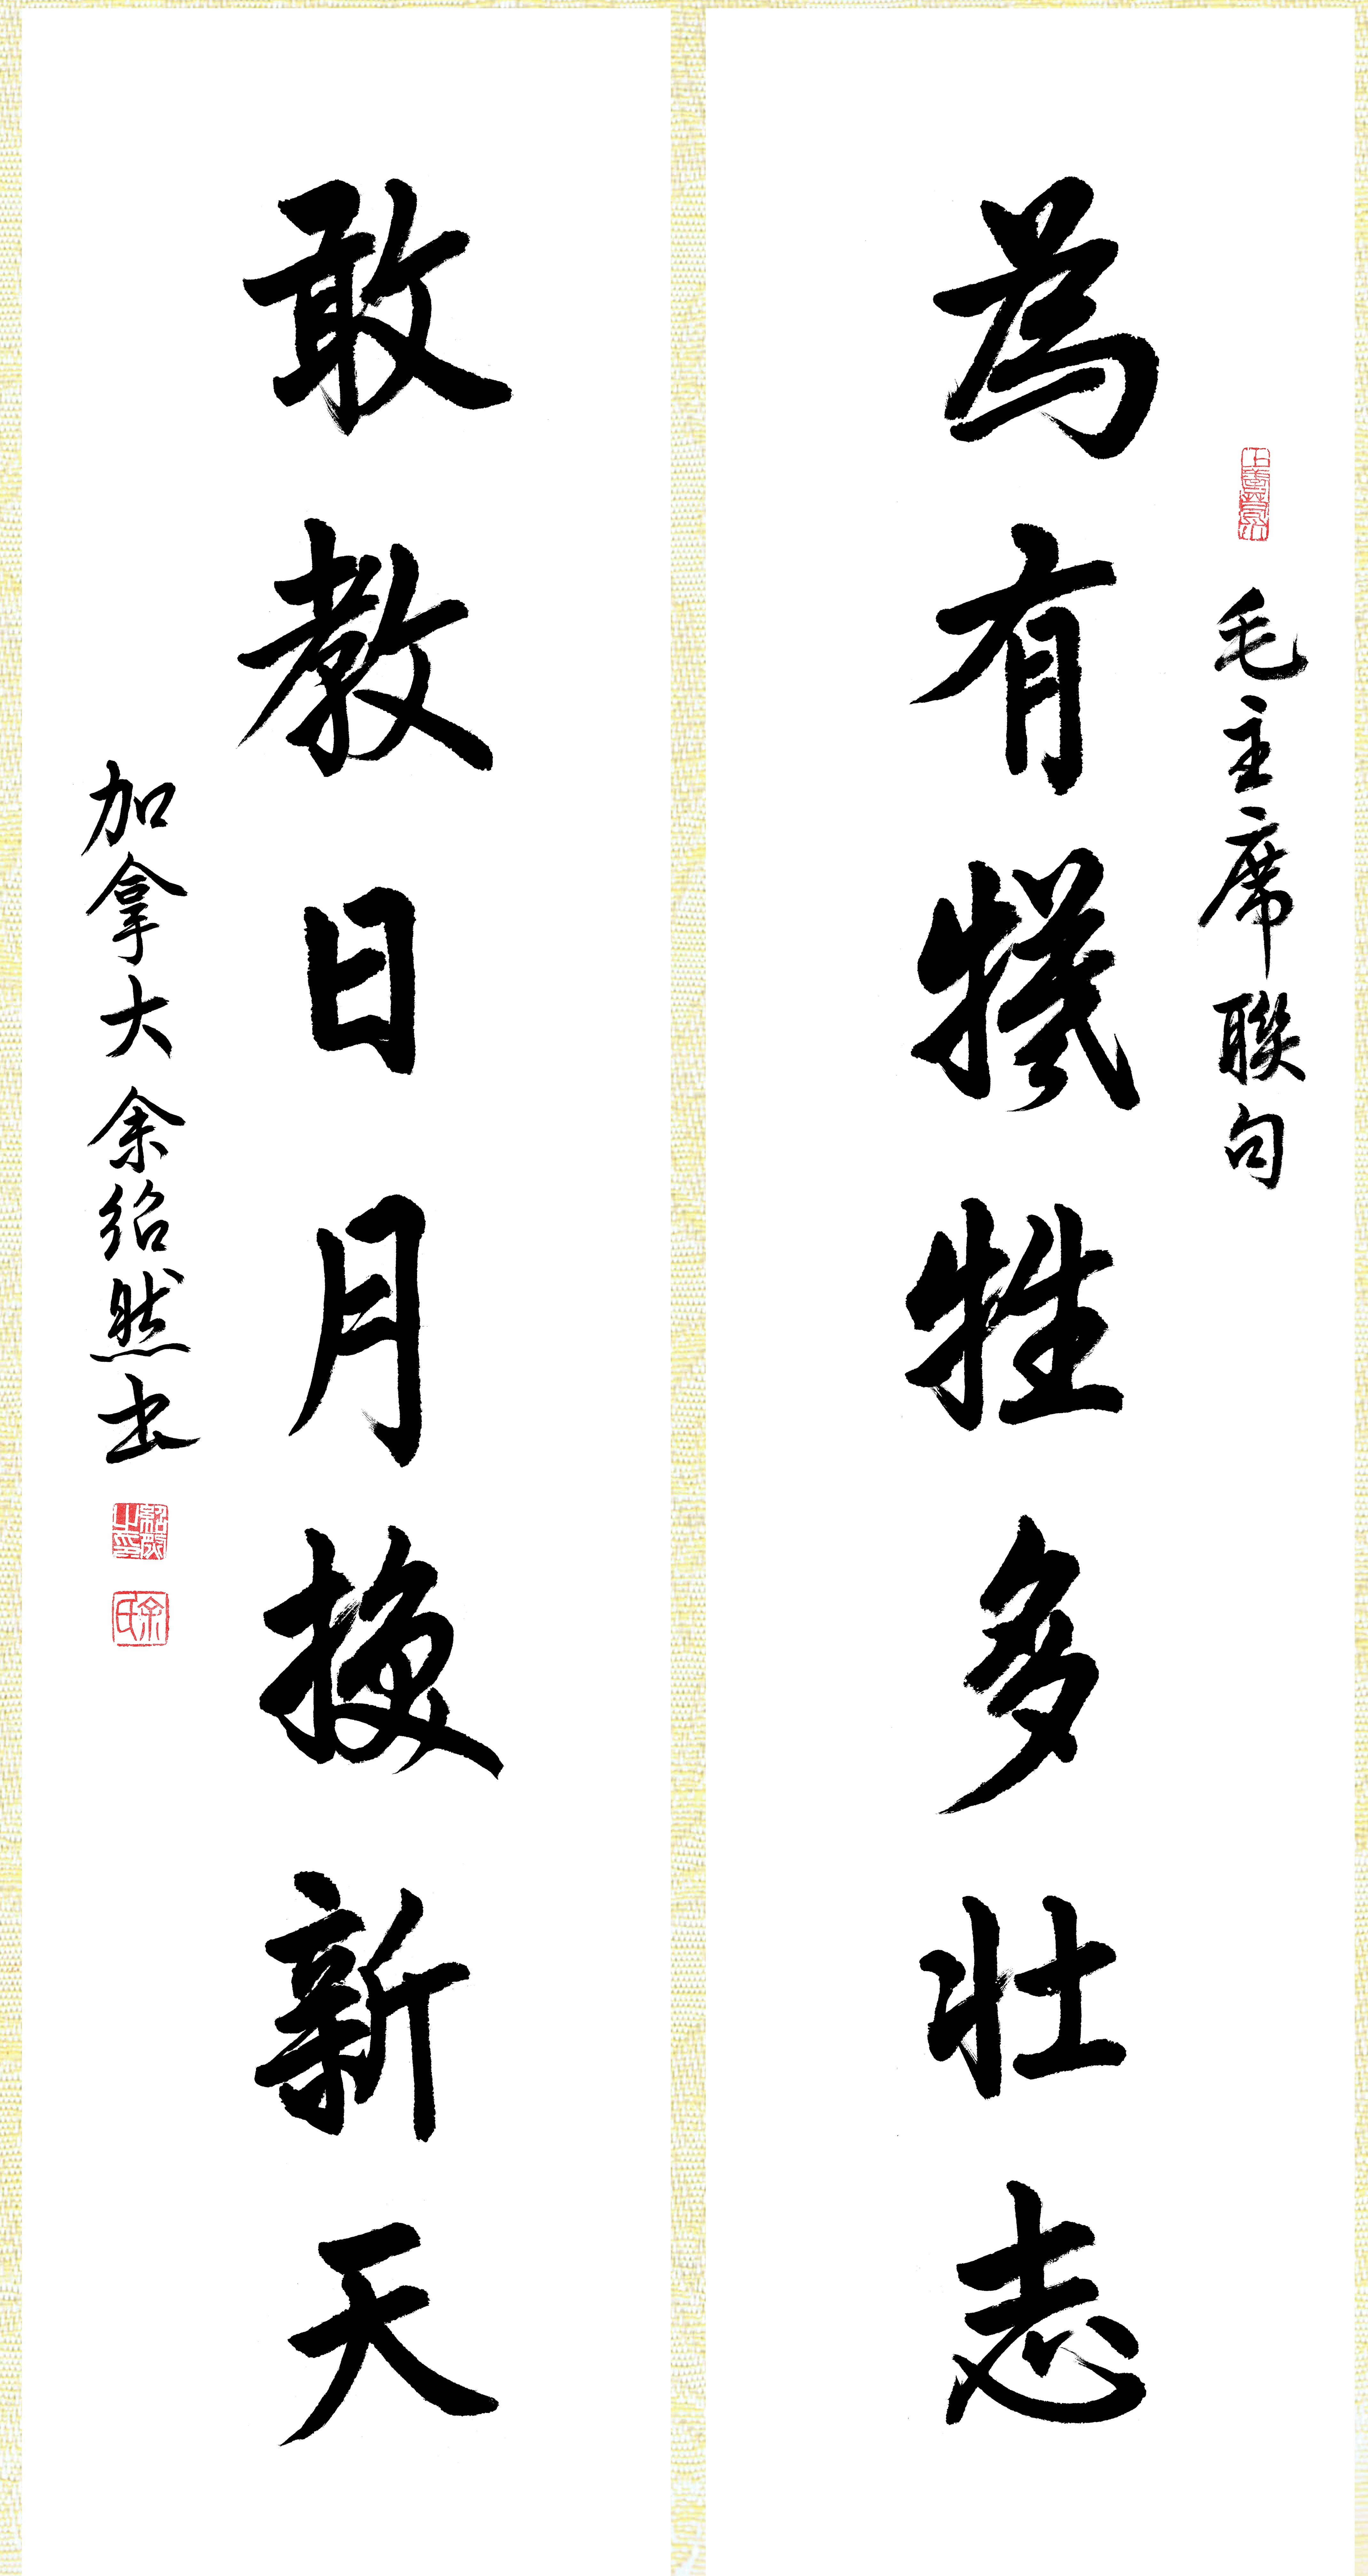 毛主席聯句
為有犧牲多壯志
敢教日月換新天
加拿大余绍然书
紹然之印
余氏